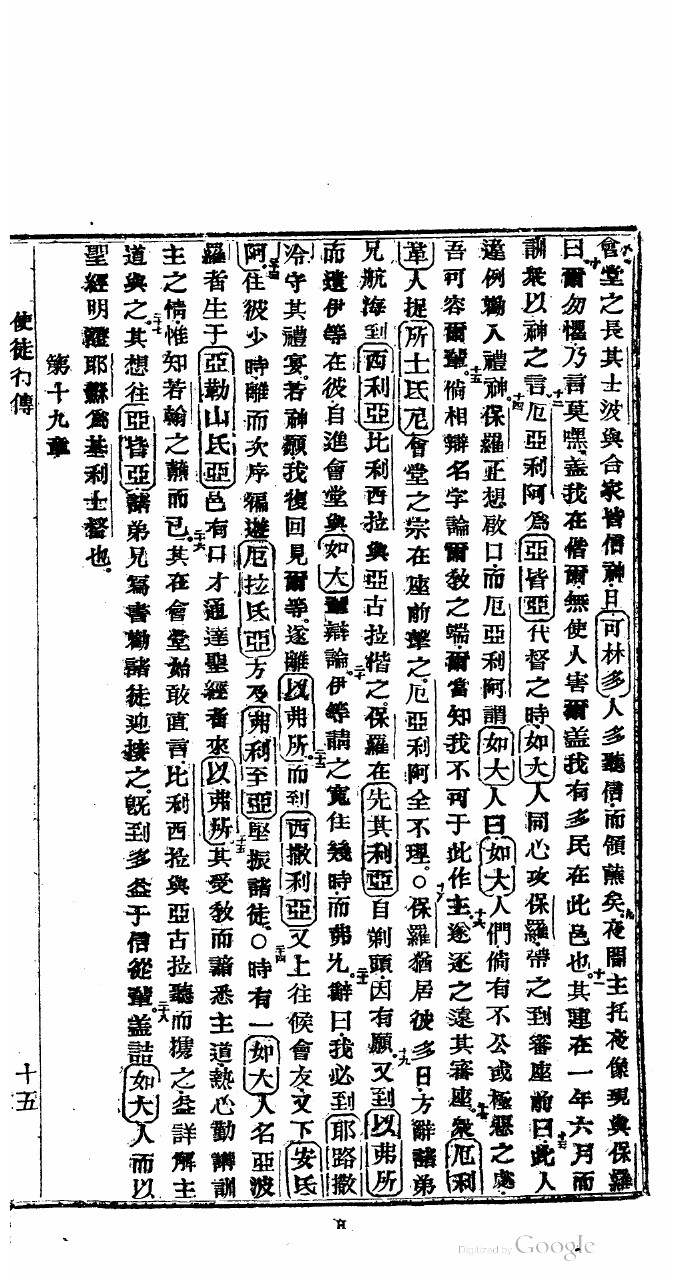 會堂之長其士波與合家皆信神且可林多人多聽信而領蘸矣夜間主托夜像現與保羅
曰爾勿懼乃言莫嘿蓋我在偕爾無使人害爾蓋我有多民在此邑也其建在一年六月而
訓衆以神之言厄亞利阿為亞皆亞代督之時如大人同心攻保羅帶之到審座前曰此人
違例勸人禮神保羅正想啟口而厄亞利阿謂如大人曰如大人們倘有不公或極惡之處
吾可容爾輩倘相辯名字論爾教之端爾當知我不可于此作主遂逐之遠其審座衆厄利
革人捉所士氐尼會堂之宗在座前擊之厄亞利阿全不理○保羅猶居彼多日方辭諸弟
兄航海到西利亞比利西拉與亞古拉偕之保羅在先其利亞自剃頭因有願又到以弗所
而遺伊等在彼自進會堂與如大輩辯論伊等請之寬住幾時而弗允辭曰我必到耶路撒
冷守其禮宴若神願我復回見爾等遂離以弗所而到西撒利亞又上往候會友又下安氐
阿住彼少時離而次序徧遊厄拉氐亞方及弗利至亞堅振諸徒○時有一如大人名亞波
羅者生于亞勒山氐亞邑有口才通達聖經者來以弗所其受教而諳悉主道熱心勤講訓
主之情惟知若翰之蘸而已其在會堂始敢直言比利西拉與亞古拉聽而携之益詳解主
道與之其想往亞皆亞諸弟兄寫書勸諸徒迎接之既到多益于信從輩蓋詰如大人而以
聖經明證耶穌為基利士督也
第十九章
使徒行傳
十五
Digitized by Google